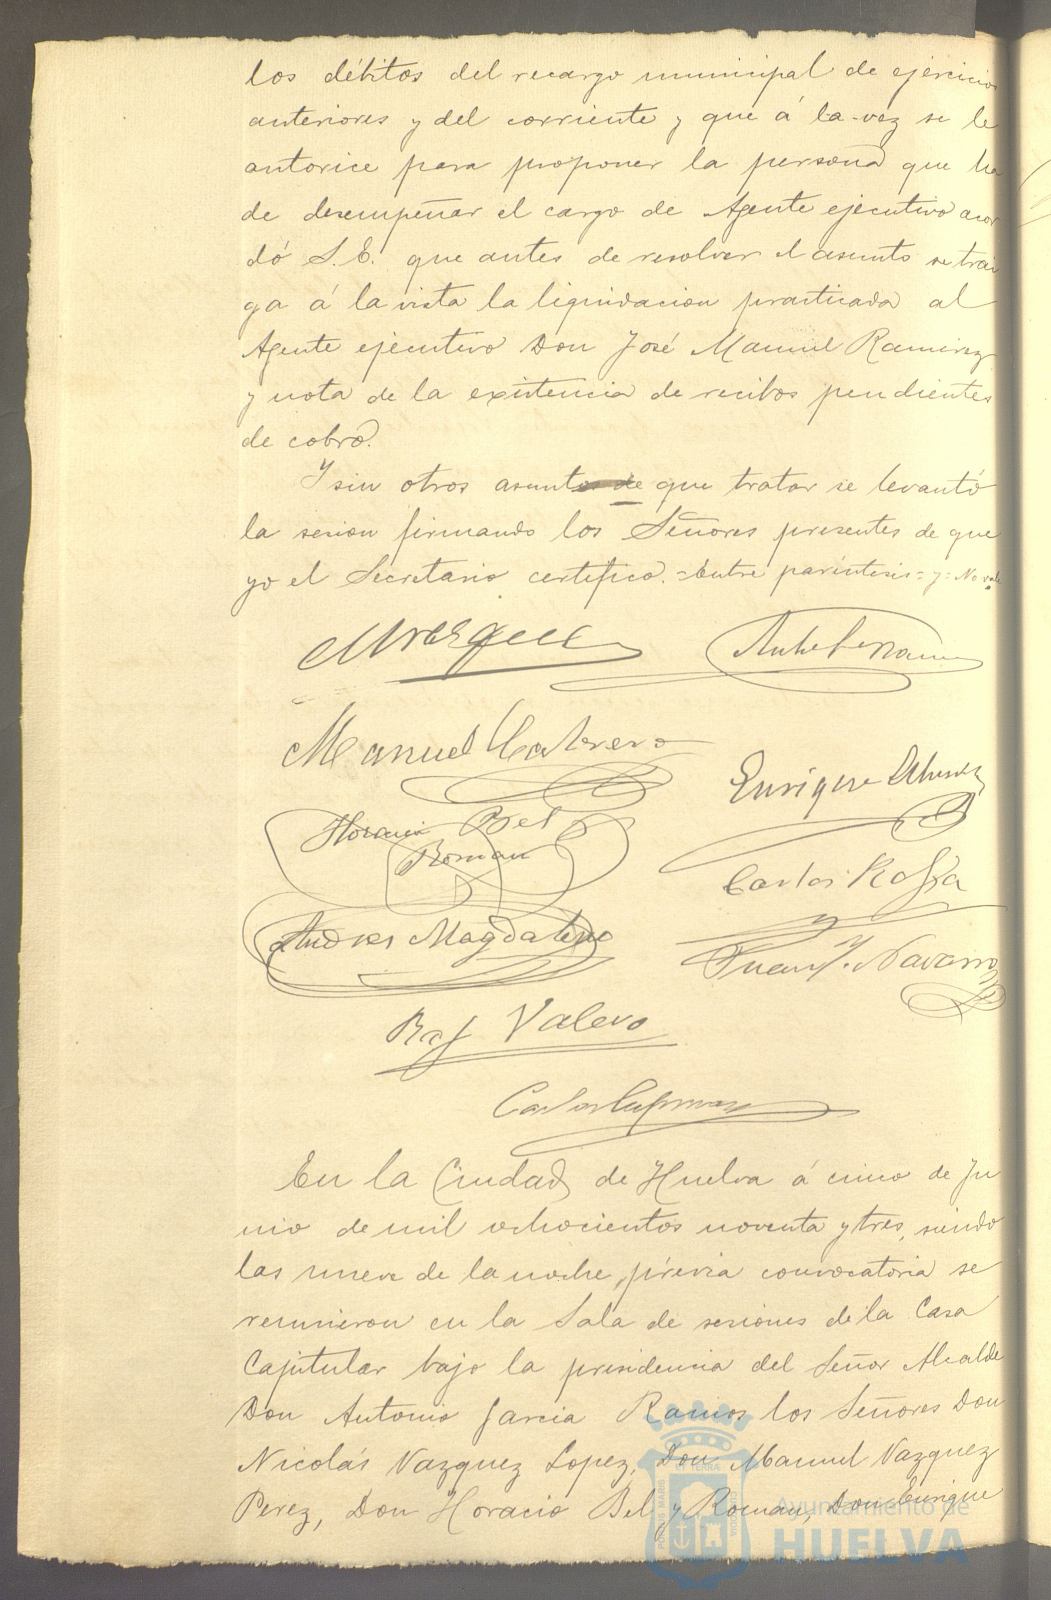 los débitos del recargo municipal de ejercicios
anteriores y del corriente y que á la vez se le
autorice para proponer la persona que ha
de desempeñar el cargo de Agente ejecutivo acor
dó S.E. que antes de resolver el asunto se trai
ga á la vista la liquidacion practicada al
Agente ejecutivo Don José Manuel Ramirez
y nota de la existencia de recibos pendientes
de cobro.
Y sin otros asuntos de que tratar se levantó
la sesion firmando los Señores presentes de que
yo el Secretario certifico. =Entre paréntesis = y = No vale
Manuel
Enrique
Horacio Bel
Roman
Carlos
Andres Magdaleno
Juan J. Navarro
Raf Valero
Carlos
En la Ciudad de Huelva á cinco de Ju
nio de mil ochocientos noventa y tres, siendo
las nueve de la noche, prévia convocatoria se
reunieron en la Sala de sesiones de la Casa
Capitular bajo la presidencia del Señor Alcalde
Don Antonio Garcia Ramos los Señores Don
Nicolás Vazquez Lopez, Don Manuel Vazquez
Perez, Don Horacio Bel y Roman, Don Enrique
Ayuntamiento de
HUELVA